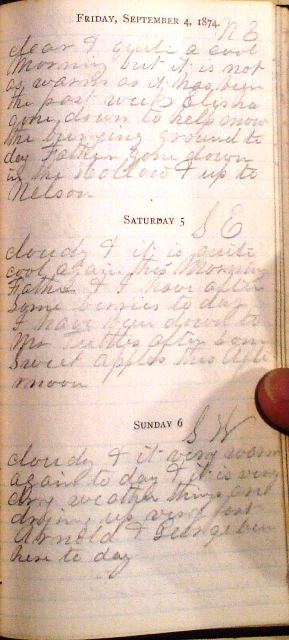 Friday, September 4, 1874.
N E
clear & quite a cool
morning but it is not
as warm as it has been
the past week Elisha
gone down to help mow
the burying ground to
day Father gone down
in the hollow & up to
Nelson
Saturday 5
S E
cloudy & it is quite
cool again this morning
Father & I have after
some berries to day
I have been down to
Mr Tuttles after som
sweet apples this after
rnoon
Sunday 6
S W
cloudy & it very warm
again to day & it is very
dry weather things are
drying up very fast
Arnold & George been
here to day